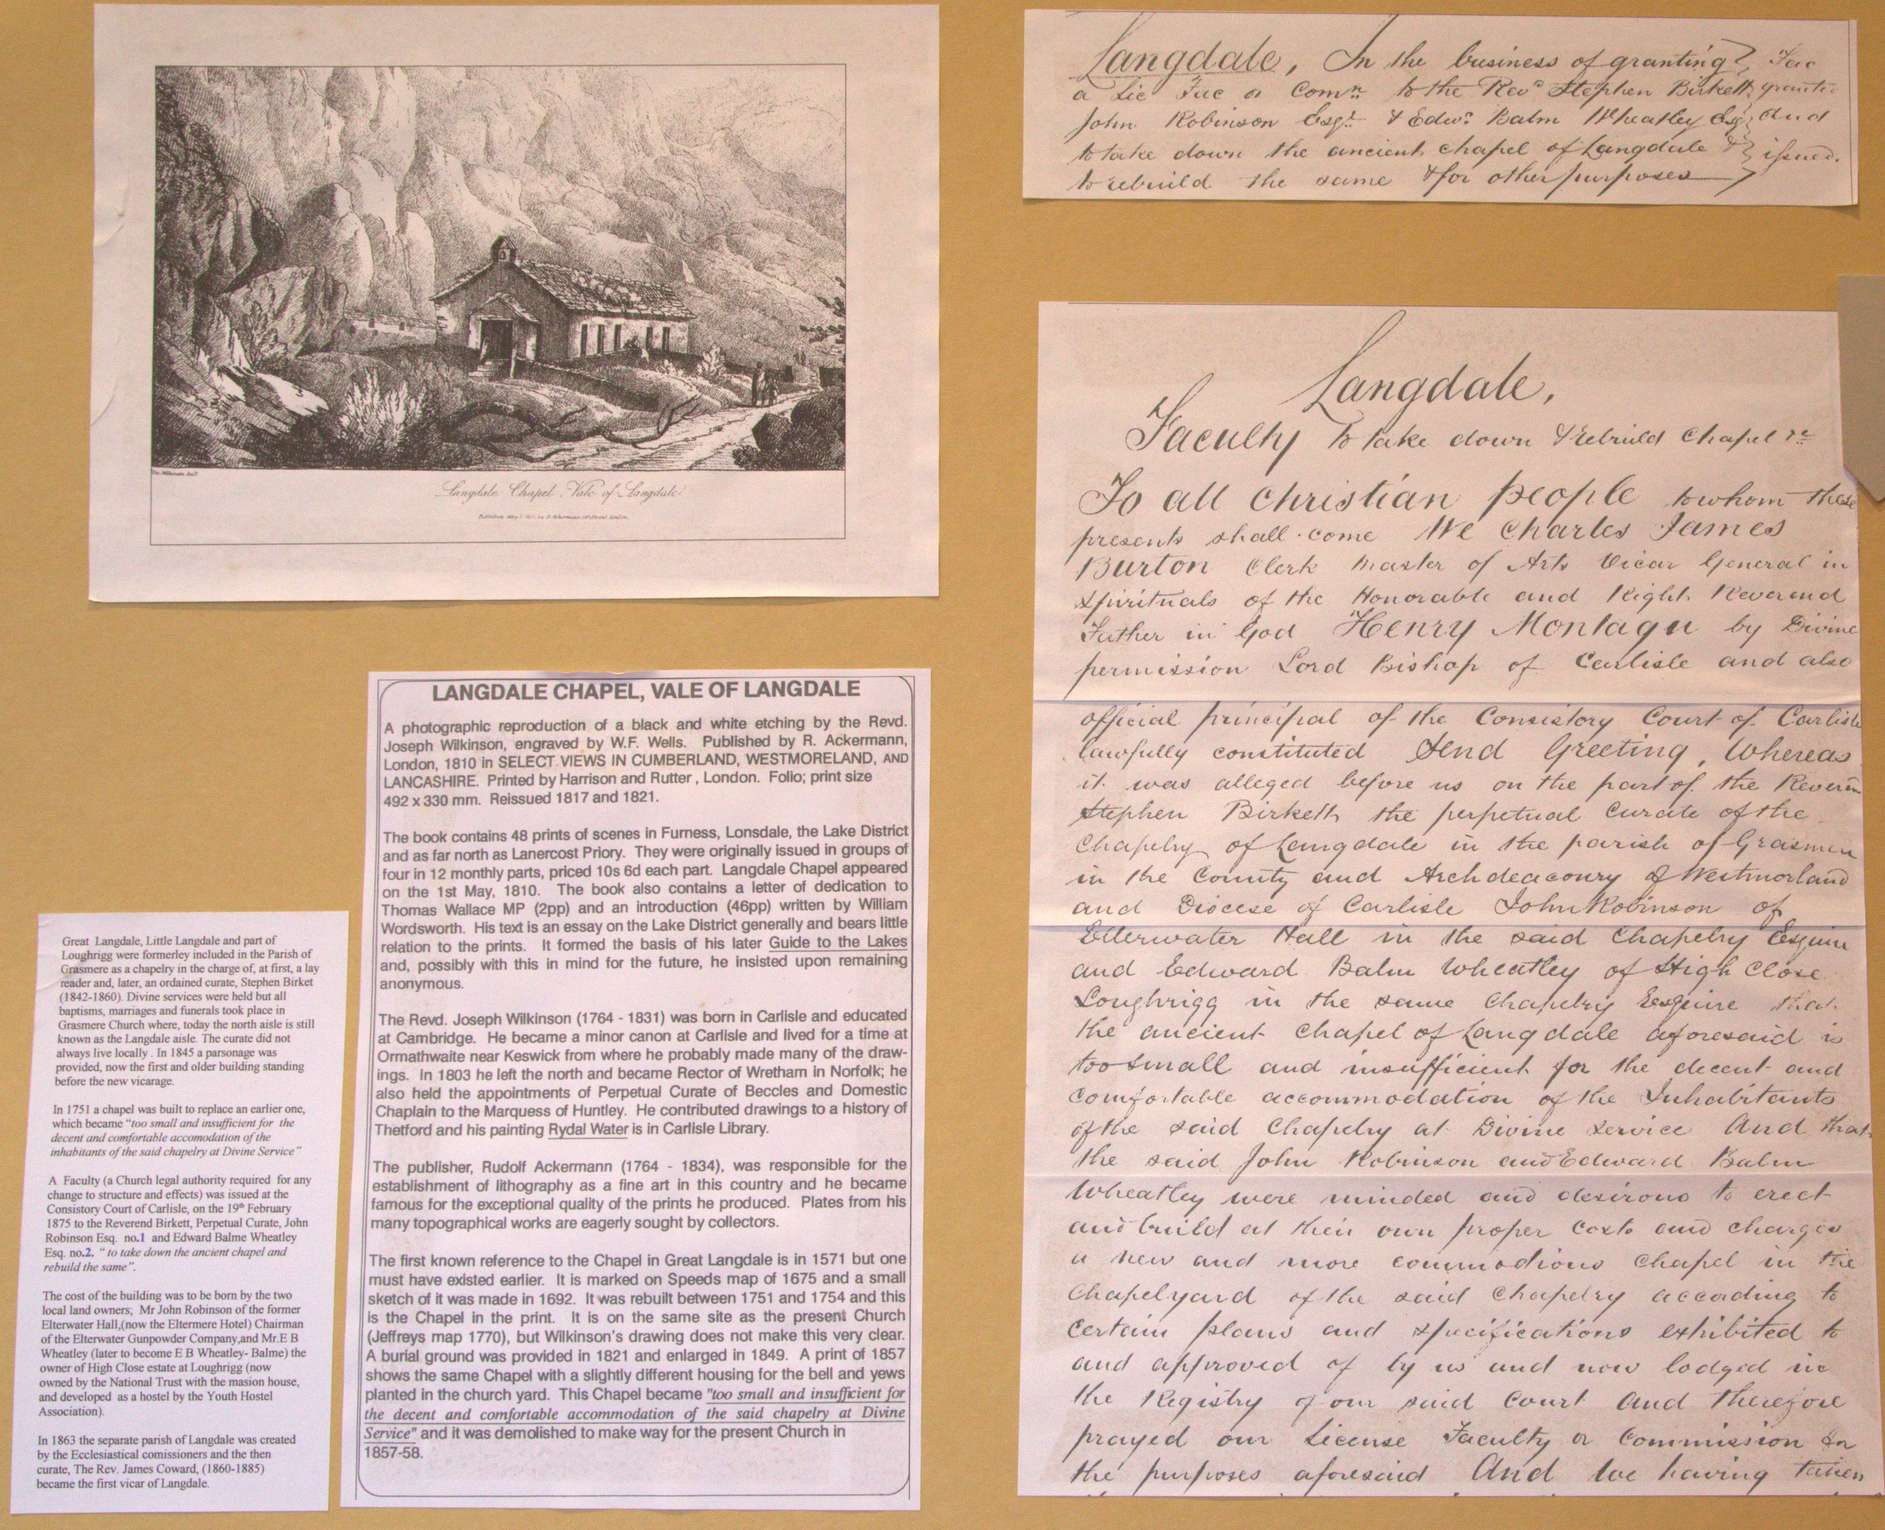 Langdale Chapel, Vale of Langdale
LANGDALE CHAPEL, VALE OF LANGDALE
A photographic reproduction of a black and white etching by the Revd.
Joseph Wilkinson, engraved by W.F. Wells. Published by R. Ackermann,
London, 1810 in SELECT VIEWS IN CUMBERLAND, WESTMORELAND, AND
LANCASHIRE. Printed by Harrison and Rutter , London. Folio; print size
492 x 330 mm. Reissued 1817 and 1821.
The book contains 48 prints of scenes in Furness, Lonsdale, the Lake District
and as far north as Lanercost Priory. They were originally issued in groups of
four in 12 monthly parts, priced 10s 6d each part. Langdale Chapel appeared
on the 1st May, 1810. The book also contains a letter of dedication to
Thomas Wallace MP (2pp) and an introduction (46pp) written by William
Wordsworth. His text is an essay on the Lake District generally and bears little
relation to the prints. It formed the basis of his later Guide to the Lakes
and, possibly with this in mind for the future, he insisted upon remaining
anonymous.
The Revd. Joseph Wilkinson (1764 - 1831) was born in Carlisle and educated
at Cambridge. He became a minor canon at Carlisle and lived for a time at
Ormathwaite near Keswick from where he probably made many of the draw-
ings. In 1803 he left the north and became Rector of Wretham in Norfolk; he
also held the appointments of Perpetual Curate of Beccles and Domestic
Chaplain to the Marquess of Huntley. He contributed drawings to a history of
Thetford and his painting Rydal Water is in Carlisle Library.
The publisher, Rudolf Ackermann (1764 - 1834), was responsible for the
establishment of lithography as a fine art in this country and he became
famous for the exceptional quality of the prints he produced. Plates from his
many topographical works are eagerly sought by collectors.
The first known reference to the Chapel in Great Langdale is in 1571 but one
must have existed earlier. It is marked on Speeds map of 1675 and a small
sketch of it was made in 1692. It was rebuilt between 1751 and 1754 and this
is the Chapel in the print. It is on the same site as the present Church
(Jeffreys map 1770), but Wilkinson's drawing does not make this very clear.
A burial ground was provided in 1821 and enlarged in 1849. A print of 1857
shows the same Chapel with a slightly different housing for the bell and yews
planted in the church yard. This Chapel became "too small and insufficient for
the decent and comfortable accommodation of the said chapelry at Divine
Service" and it was demolished to make way for the present Church in
1857-58.
Great Langdale, Little Langdale and part of
Loughrigg were formerley included in the Parish of
Grasmere as a chapelry in the charge of, at first, a lay
reader and, later, an ordained curate, Stephen Birket
(1842-1860). Divine services were held but all
baptisms, marriages and funerals took place in
Grasmere Church where, today the north aisle is still
known as the Langdale aisle. The curate did not
always live locally . In 1845 a parsonage was
provided, now the first and older building standing
before the new vicarage.
In 1751 a chapel was built to replace an earlier one,
which became "too small and insufficient for the
decent and comfortable accomodation of the
inhabitants of the said chapelry at Divine Service"
A Faculty (a Church legal authority required for any
change to structure and effects) was issued at the
Consistory Court of Carlisle, on the 19th February
1875 to the Reverend Birkett, Perpetual Curate, John
Robinson Esq. no.1 and Edward Balme Wheatley
Esq. no.2. " to take down the ancient chapel and
rebuild the same".
The cost of the building was to be born by the two
local land owners; Mr John Robinson of the former
Elterwater Hall,(now the Eltermere Hotel) Chairman
of the Elterwater Gunpowder Company,and Mr.E B
Wheatley (later to become E B Wheatley- Balme) the
owner of High Close estate at Loughrigg (now
owned by the National Trust with the masion house,
and developed as a hostel by the Youth Hostel
Association).
In 1863 the separate parish of Langdale was created
by the Ecclesiastical comissioners and the then
curate, The Rev. James Coward, (1860-1885)
became the first vicar of Langdale.
Langdale, In the business of granting Fac
a Lic Fac or Comn to the Revd Stephen Birkett
John Robinson Esqr & Edwd Balm Wheatley Esq and
to take down the ancient chapel of Langdale & issued.
to rebuild the same & for other purposes
Langdale,
Faculty to take down & rebuild Chapel &c
To all Christian People to whom these
presents shall come We Charles James
Burton Clerk Master of Arts Vicar General in
Spirituals of the Honorable and Right Reverend
Father in God Henry Montagu by Divine
permission Lord Bishop of Carlisle and also
official principal of the Consistory Court of Carlisle
lawfully constituted Send Greeting, Whereas
it was alleged before us on the part of the
Stephen Birkett the perpetual Curate of the
Chapelry of Langdale in the parish of
in the County and Archdeaconry of Westmorland
and Diocese of Carlisle John Robinson of
Elterwater Hall in the said Chapelry Esquire
and Edward Balm Wheatley of High Close
Loughrigg in the same Chapelry Esquire that
the ancient Chapel of Langdale aforesaid is
too small and insufficient for the decent and
comfortable accommodation of the Inhabitants
of the said Chapelry at Divine Service And that
the said John Robinson and Edward Balm
Wheatley were minded and desirous to erect
and build at their own proper costs and charges
a new and more commodious Chapel in the
Chapelyard of the said Chapelry according to
certain plans and specifications exhibited to
and approved of by us and now lodged in
the Registry of our said Court And therefore
prayed our License Faculty or Commission for
the purposes aforesaid And we having taken